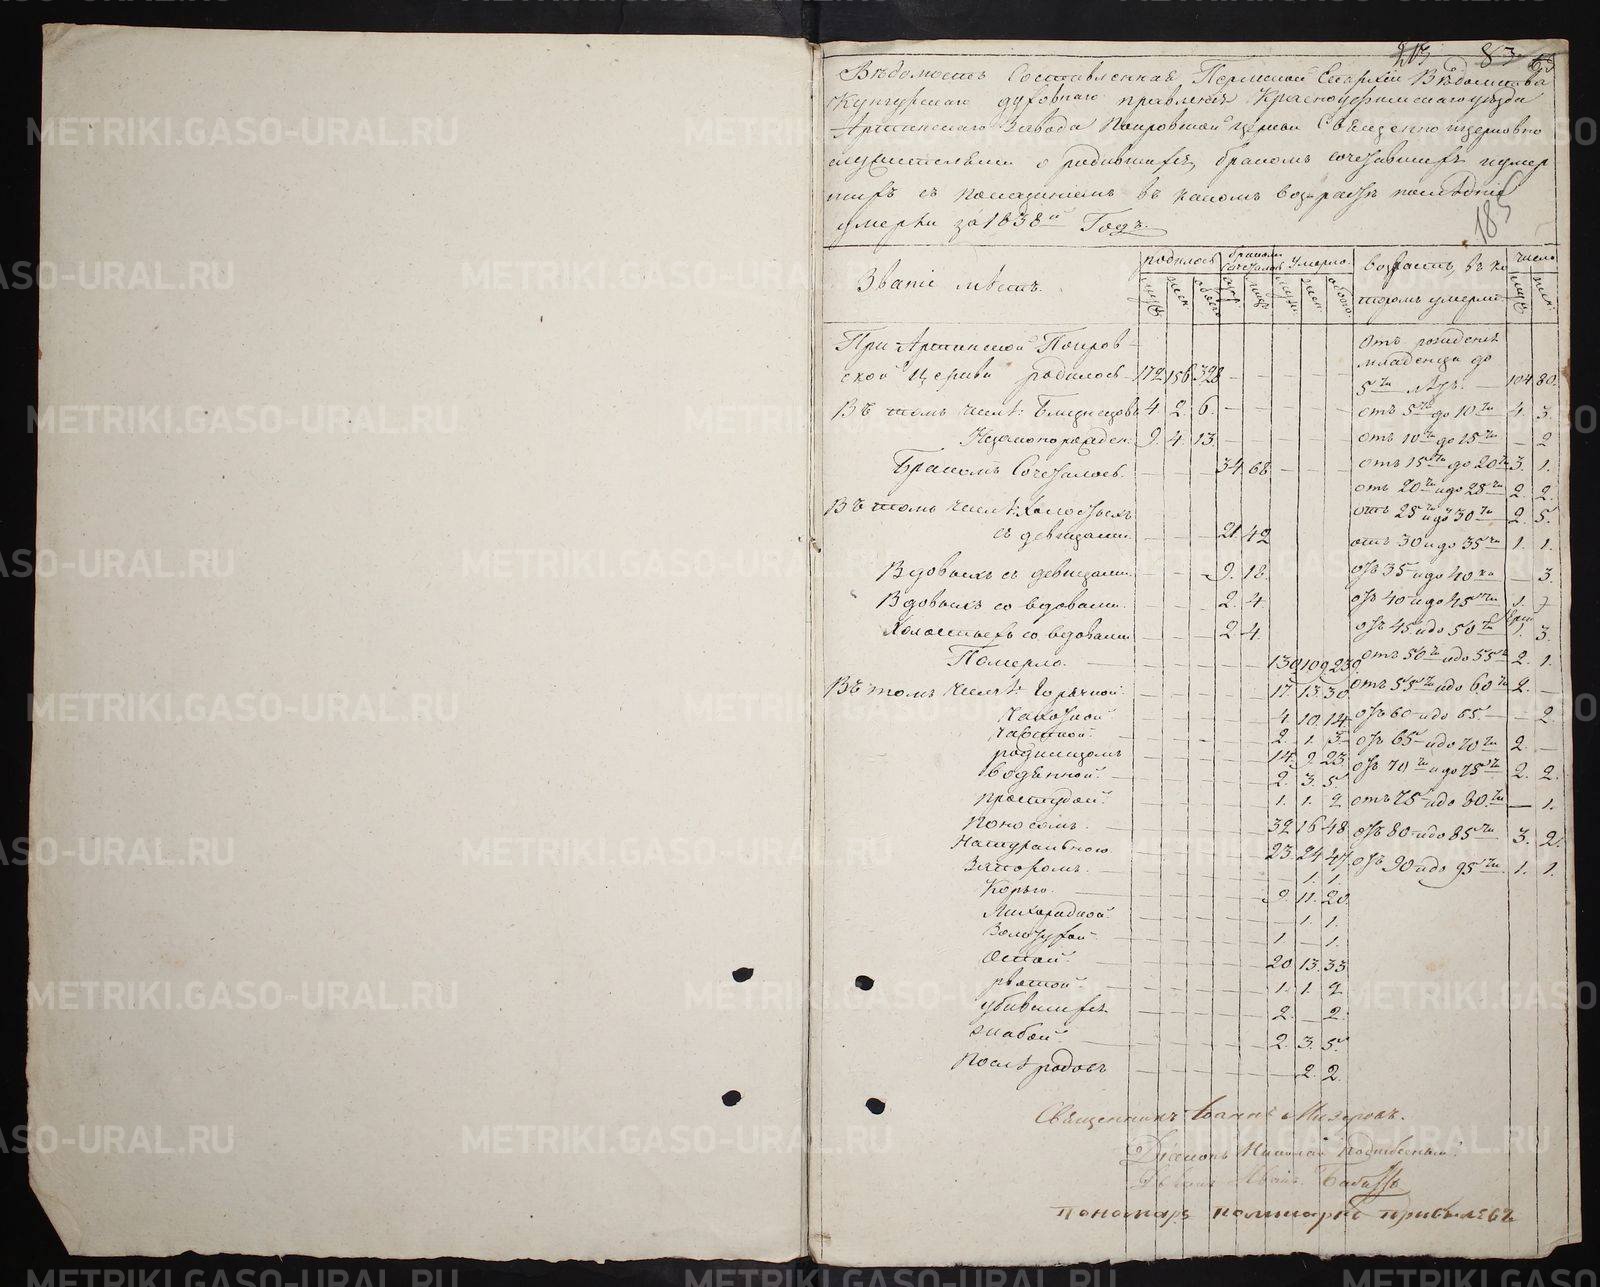 213 83
Вѣдомость Составленная Пермской Епархіи Вѣдомства
Кунгурскаго духовнаго правленія Красноуфимскаго уѣзда
Артинскаго Завода Покровской церкви Священно церковно
служителями о родившихся, бракомъ сочетавшихся и умер
шихъ съ показаніемъ въ какомъ возрастѣ послѣдніе
умерли за 1838й Годъ.
185
Званіе мѣстъ.
родилось бракомъ сочеталось Умерло. возрастъ, въ ко число
муж жен обоего муж. жен. обоего. торомъ умерли муж жен.
При Артинской Покров-
ской Церкви родилось 172 156 328 — — — — —
Отъ рожденія младенца до 5ти лѣтъ. — 104 80.
Въ томъ числѣ: Близнецовъ 4. 2. 6. — — отъ 5ти до 10ти 4. 3.
Незаконорожден. 9. 4. 13. — — отъ 10ти до 15ти — 2
Бракомъ Сочеталось. — — — 34. 68. — — — отъ 15ти до 20ти 3. 1.
отъ 20ти и до 25ти 2. 2.
Въ томъ числѣ: Холостыхъ отъ 25ти и до 30ти 2. 5.
съ девицами. — — — 21. 42 отъ 30 и до 35ти 1. 1.
Вдовыхъ съ девицами. — — — 9. 18. отъ 35 и до 40ти — 3.
Вдовыхъ со вдовами. — — — 2. 4. отъ 40 и до 45ти 1. 7
Холостыхъ со вдовами — — — 2 4. отъ 45 и до 50ти 1. 3.
Померло. — — — — — — 130 109 239 отъ 50ти и до 55ти 2. 1.
Въ томъ числѣ: Горячкой. — — — — — 17. 13. 30 отъ 55ти и до 60ти 2. —
Чахоткой. — — — — — 4. 10. 14. отъ 60 и до 65. — — 2
2. 1. 3. отъ 65 и до 70ти 2. —
родимцомъ — — — — — 14. 9. 23. отъ 70ти и до 75ти 2. 2.
водянкой. — — — — — 2. 3. 5. отъ 75 и до 80ти — 1.
простудой. — — — — — 1. 1. 2
Поносомъ. — — — — — 32 16 48 отъ 80 и до 85ти 3. 2.
Натуральною — — — — — 23. 24 47 отъ 90 и до 95ти 1. 1.
Запоромъ. — — — — — — 1. 1.
Корью. — — — — — 9. 11. 20.
Лихорадкой. — — — — — — 1. 1.
Золотухой. — — — — — 1 — 1.
Оспой. — — — — — 20. 13. 33
рвотой. — — — — — 1. 1. 2
убившихся — — — — — 2. — 2.
2. 3. 5.
Послѣ родовъ 2. 2.
Священникъ Іоаннъ Мизеровъ.
Діаконъ Николай
пономарь
METRIKI.GASO-URAL.RU